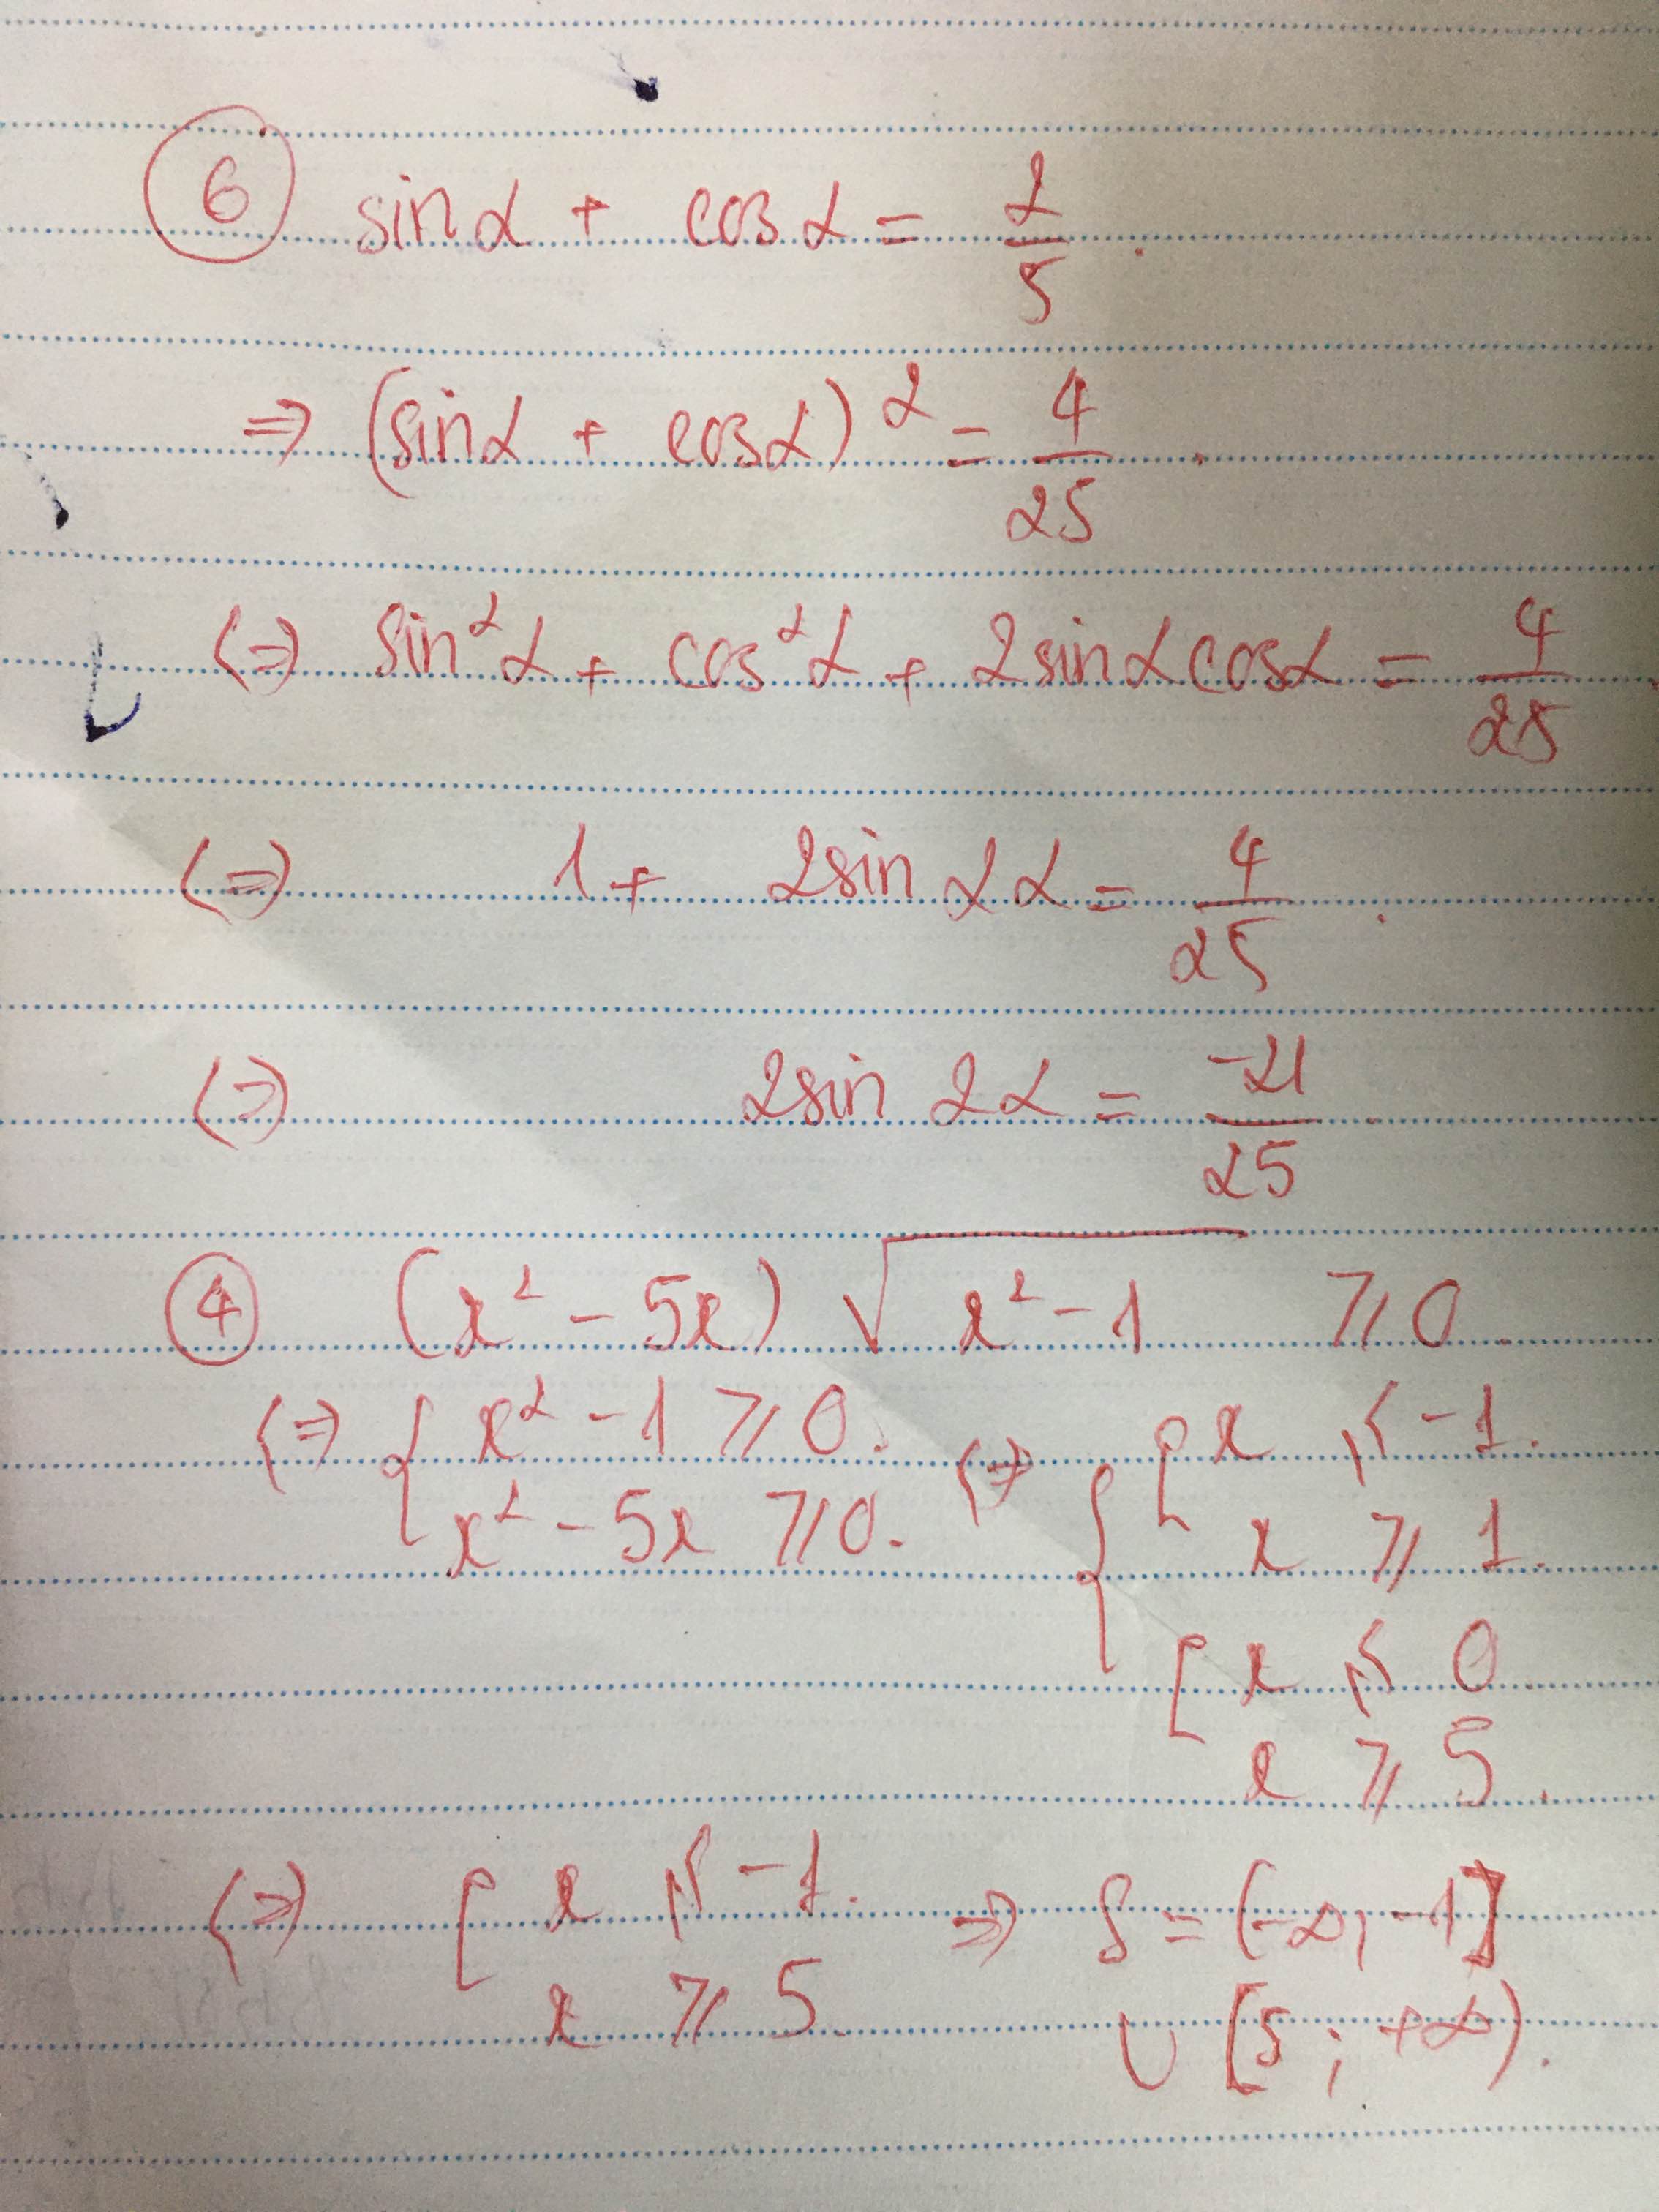 6 sinα + cosα = 2/5.
⇒ (sinα + cosα)² = 4/25.
⇔ sin²α + cos²α + 2sinαcosα = 4/25.
⇔ 1 + 2sin 2α = 4/25.
⇔ 2sin 2α = -21/25.
4 (x² - 5x) √(x² - 1) ⩾ 0.
⇔ { x² - 1 ⩾ 0. ⇔ { [ x ⩽ -1.
x² - 5x ⩾ 0. x ⩾ 1.
[ x ⩽ 0
x ⩾ 5.
⇔ [ x ⩽ -1. ⇒ S = (-∞; -1]
x ⩾ 5. ∪ [5; +∞).